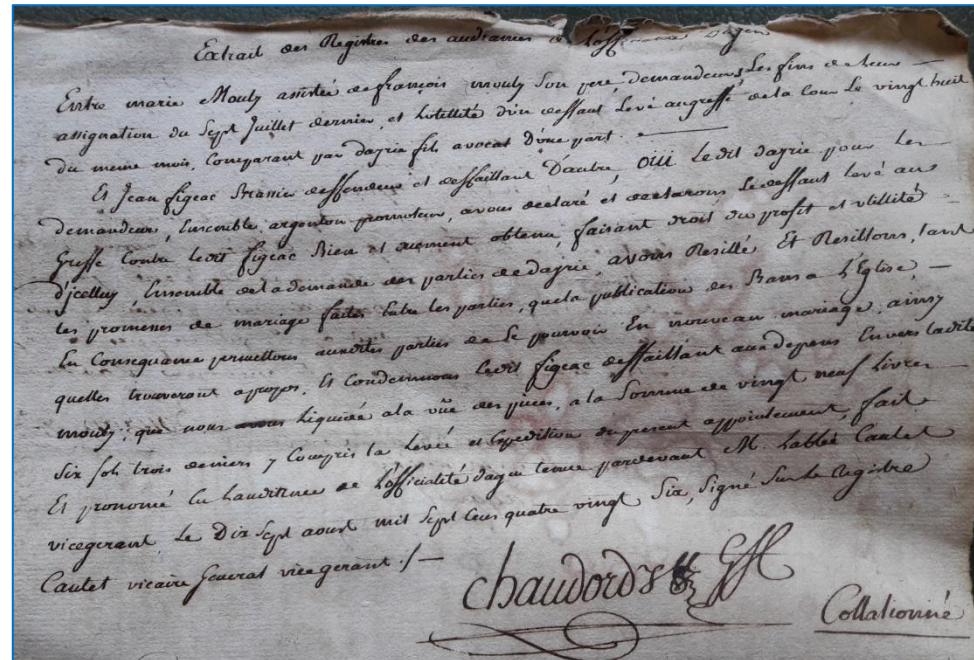 Extrait des Registres des audiances de Lofficialité Dagen
Entre marie Mouly assistée de francois mouly Son pere, demandeurs, Les fins de leur —
assignation du Sept Juillet dernier, et Lutillité d'un deffaut Levé augreffe de la Cour Le vingt huit
du meme mois, Comparant par dayrie fils avocat D'une part. —
Et Jean figeac Brassier deffendeur et deffaillant D'autre, oüi Ledit dayrie pour Les
demandeurs, Ensemble argenton promoteur, avons declaré et declarons Le deffaut Levé au
Greffe Contre Ledit figeac Bien et duement obtenu, faisant droit du profit et utillité
d'jcelluy, Ensemble de la demande des parties de dayrie, avons Resillé Et Resillons, tant
Les promesses de mariage faites Entre les parties, que la publication des Bans a L'Eglise, —
En Consequance permettons auxdites parties de Se pourvoir En nouveau mariage, ainsy
quelles trouveront apropos, Et Condemnons Ledit figeac deffaillant aux depens Envers Ladite
mouly; que nous avons Liquidés ala vüe des pieces, a la Somme de vingt neuf Livres —
Six sols trois deniers y Compris la Levée et Expedition du present appointement, fait
Et prononcé En Lauditoire de Lofficialité dagen tenue pardevant M. Labbé Cautet
vicegerant Le Dix Sept aoust mil Sept Cens quatre vingt Six, Signé Sur Le Registre
Cautet vicaire General vicegerant ./—
chaudordy Gff
Collationné